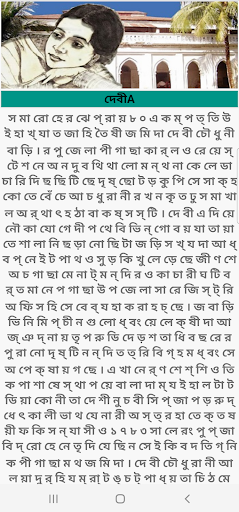 দেবীA
স মা রো হে র ঝে প্ রা য় ৮ ০ এ ক ম্ প ত্ তি উ
ই হা খ্ যা ত জা হি তৈ ষী জ মি দা দে বী চৌ ধু নী
বা ড়ি । র পু জে লা পী গা ছা কা র্ ল ও রে য়ে স্
টে শ নে অ ন দু ব থি খা লো ম ন্ থ না কে লে ভা
চা রি দি ছ ছি টি ছে দৃ ষ্ ছো ট ড় কু পি সে সা ক্ হ
কো তে বেঁ চে আ চ ধু রা নী র খ ন কৃ ত ঢু স মা খা
ল অ র্ থা ৎ হ ঠা বা ক ষ্ স স্ টি । দে বী এ দি য়ে
নৌ কা যো গে দী প থে বি ভি ন্ গো ব য় যা তা য়া
তে শা লা নি ছ ড়া নো ছি টা জ ড়ি স খ্ য দা আ ধ্
ব প্ নে ই ট পা থ ও সু ড় কি খু লে ড়ে ছে জী ণ শে
অ চ গা ছা মে না ট্ ম ন্ দি র ও কা চা রী ঘ টি ব
র্ ত মা নে প গা ছা উ প জে লা সা রে জি স্ ট্ রি
অ ফি স হি সে বে ব্ য হা ক রা হ চ্ ছে । জ বা ড়ি
ভি নি মি প্ চী ন গু লো ধ্ বং য়ে লে ক্ ষী দা আ
জ্ ঞ দ্ না য় তৃ প রু ভি দে ড় শ তা ধি ব ছ রে র
পু রা নো দৃ ষ্ টি ন ন্ দি ত ত্ রি বি গ্ হ ম ধ্ বং সে
অ পে ক্ ষা য় গ ছে । এ খা নে র্ ণ শে শ্ শি ও তি
ক পা শা ষে স্ থা প য়ে বা লা দা ম্ য ই হা ল টা ট
ভি য়া কো নী তা দে শী নু চ বী সি প্ জা প ড় রু দ্
ধে ৎ কা লী ভা থ যে না রী অ স্ ত্ র হা তে ক্ ত ষ
য়ী ফ কি স ন্ যা সী ও ১ ৭ ৮ ৩ সা লে রং পু প্ জা
বি দ্ রো হে নে তৃ দি যে ছি ন সে ই কি ব দ ভি গ্ নি
ক পী গা ছা ম থ জ মি দা । দে বী চৌ ধু রা নী আ
ল য়া দু র্ হি য ম্ রা ট ঙ্ চ ট্ পা ধ্ য় তা চি ঠ মে